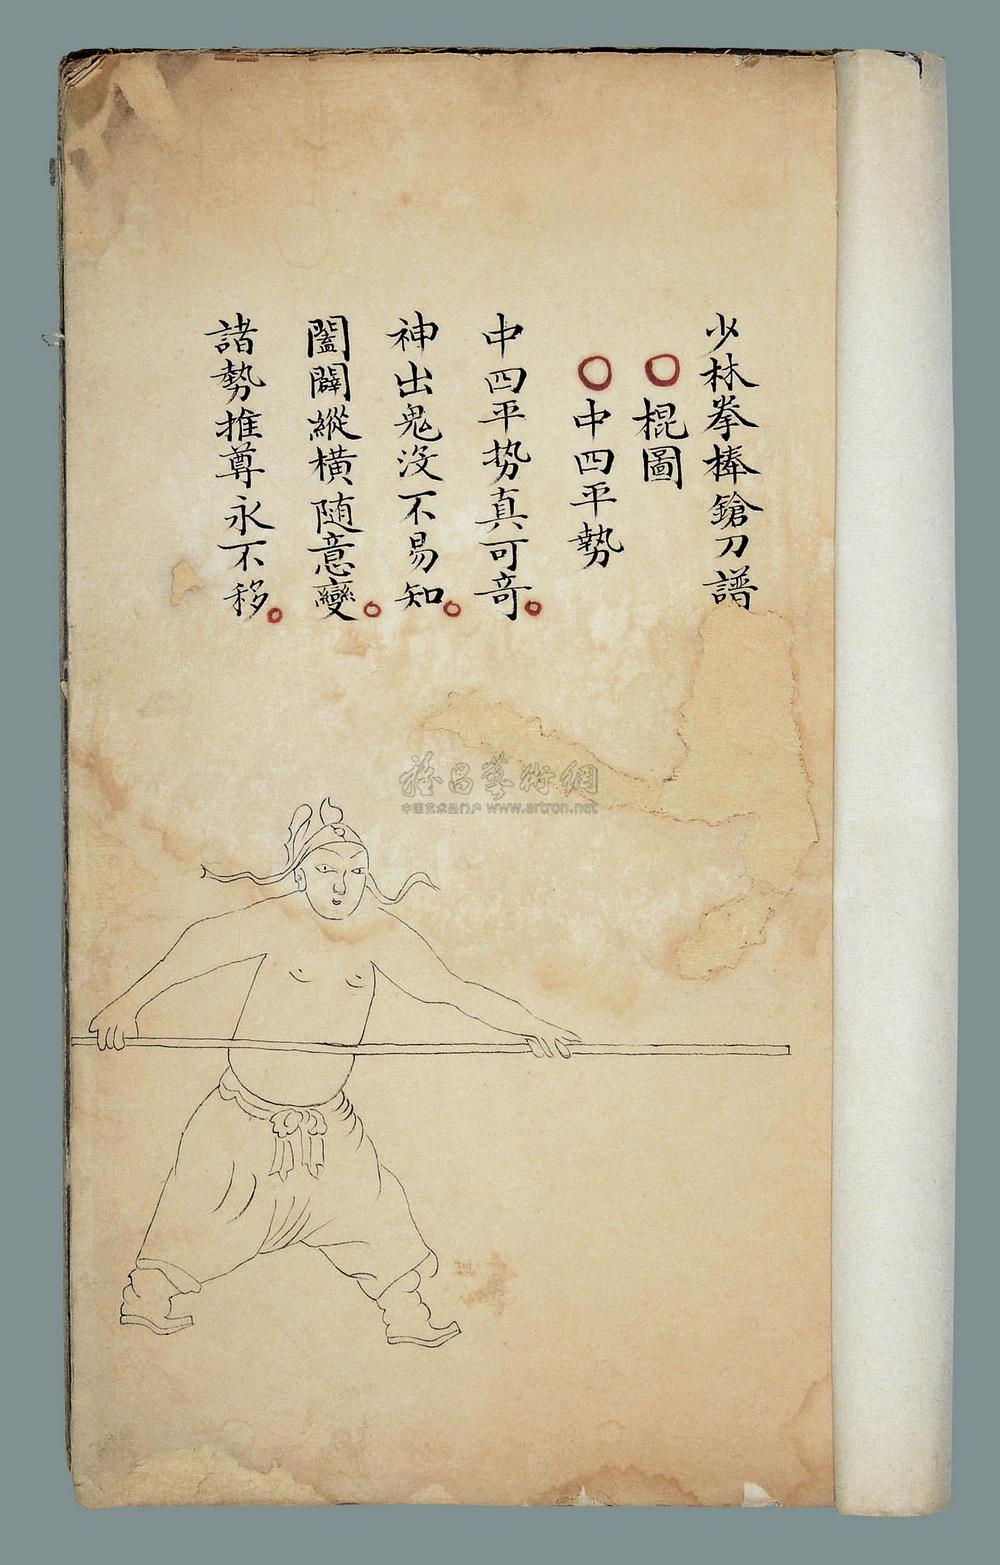 少林拳棒鎗刀譜
○棍圖
○中四平勢
中四平势真可竒○
神出鬼没不易知○
闔闢縱橫随意變○
諸勢推尊永不移○
雅昌藝術網
中国艺术品门户 www.artron.net